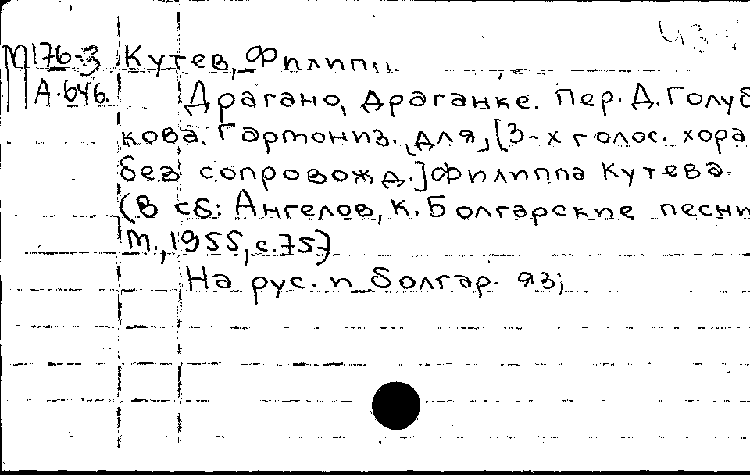 М176-3 Кутев, Филипп.
А-646. Драгано, Драганке. Пер. Д. Голуб
кова. Гармониз. для [3-х голос. хора
без сопровожд.] Филиппа Кутева.
(В сб: Ангелов, К. Болгарские песни
М., 1955, с. 75)
На рус. и болгар. яз;